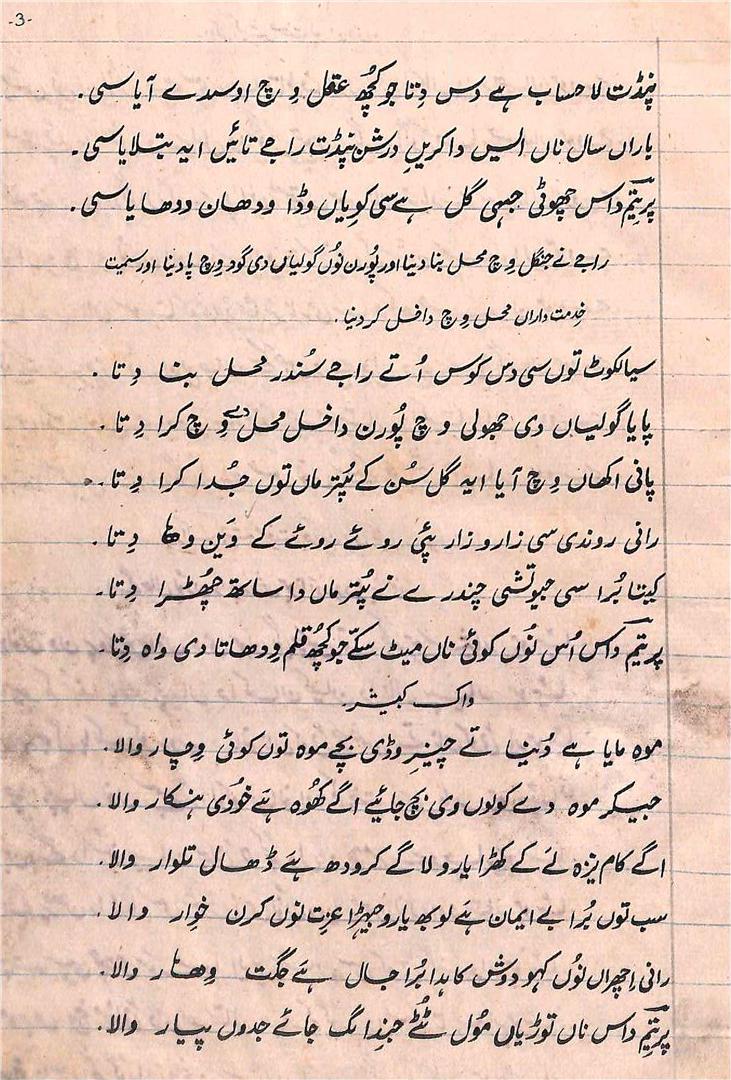 -3-
پنڈت لا حساب ہے دس دِتا جو کچُھ عقل وِچ اوسدے آیا سی۔
باراں سال ناں ایس دا کریں درشن پنڈت راجے تائیں ایہ بتلایا سی۔
پریتم داس چھوٹی جیہی گل ہے سی کویاں وڈا ودھان ودھایا سی۔
راجے نے جنگل وِچ محل بنا دینا اور پُورن نوُں گولیاں دی گود وِچ پا دینا اور سمیت
خِدمت داراں محل وِچ داخل کر دینا۔
سیالکوٹ توں سی دس کوس اُتے راجے سُندر محل بنا دِتا۔
پایا گولیاں دی جھولی وِچ پُورن داخل محل دے وِچ کرا دِتا۔
پانی اکھاں وِچ آیا ایہ گل سُن کے پُتر ماں توں جُدا کرا دِتا۔
رانی روندی سی زارو زار پئی روئے روئے کے وَین وہا دِتا۔
کیتا بُرا سی جیوتشی چندرے نے پُتر ماں دا ساتھ چھُڑا دِتا۔
پریتم داس اُس نوُں کوئی ناں میٹ سکے جو کچُھ قلم وِدھاتا دی واہ دِتا۔
واک کبیشر۔
موہ مایا ہے دُنیا تے چیز وڈی بچے موہ توں کوئی وِچار والا۔
جیکر موہ دے کولوں وی بچ جائیے اگے کھُوہ ہَے خوُدی ہنکار والا۔
اگے کام نیزہ لَے کے کھڑا یارو لاگے کرودھ ہَے ڈھال تلوار والا۔
سب توں بُرا بے ایمان ہَے لوبھ یارو جیہڑا عزت نوں کرن خوار والا۔
رانی اِچھراں نوُں کہو دوش کاہدا بُرا جال ہَے جگت وِہار والا۔
پریتم داس ناں توڑیاں مُول ٹُٹے جِندا لگ جائے جدوں پیار والا۔